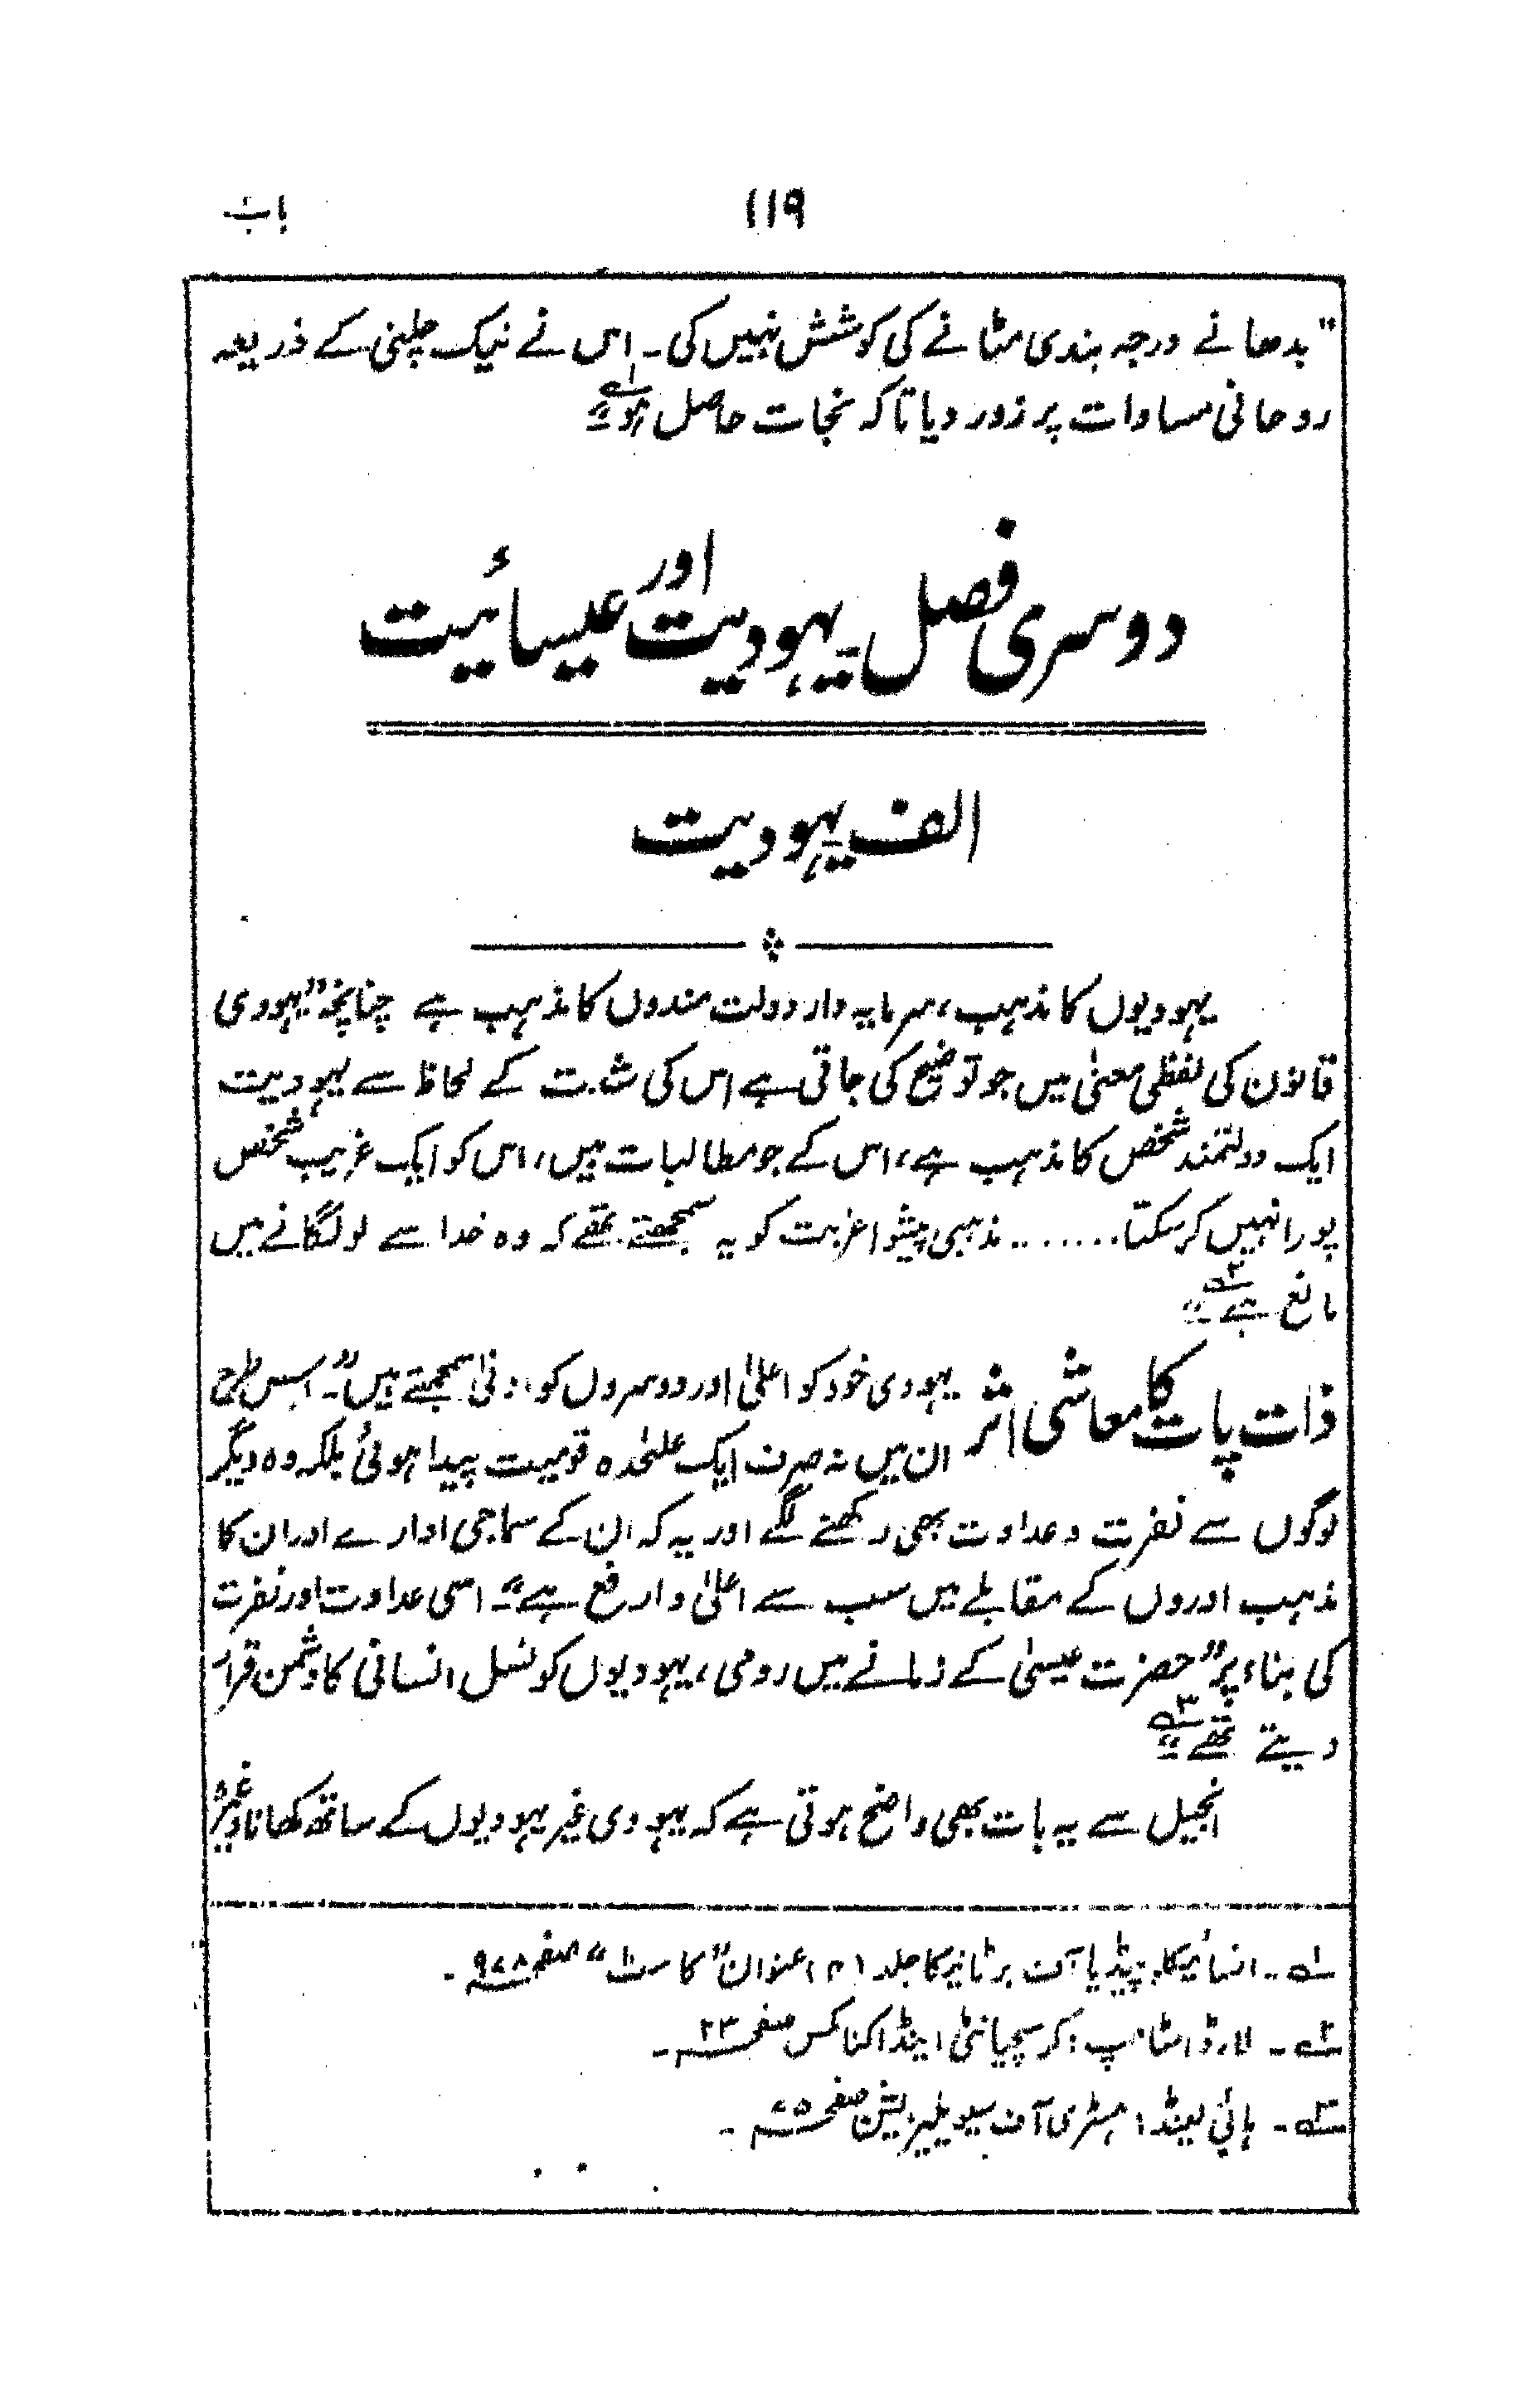 ۱۱۹
باب
"بدھا نے درجہ بندی مٹانے کی کوشش نہیں کی۔ اس نے نیک چلنی کے ذریعہ
روحانی مساوات پر زور دیا تاکہ نجات حاصل ہو۔"۱؎
دوسری فصل۔ یہودیت اور عیسائیت
الف یہودیت
یہودیوں کا مذہب، سرمایہ دار دولت مندوں کا مذہب ہے چنانچہ "یہودی
قانون کی لفظی معنیٰ میں جو توضیح کی جاتی ہے اس کی شدت کے لحاظ سے یہودیت
ایک دولتمند شخص کا مذہب ہے، اس کے جو مطالبات ہیں، اس کو ایک غریب شخص
پورا نہیں کرسکتا....... مذہبی پیشوا غربت کو یہ سمجھتے تھے کہ وہ خدا سے لو لگانے میں
مانع ہے۔"۲؎
ذات پات کا معاشی اثر
یہودی خود کو اعلیٰ اور دوسروں کو ادنیٰ سمجھتے ہیں"۔ اس طرح
ان میں نہ صرف ایک علیحدہ قومیت پیدا ہوئی بلکہ وہ دیگر
لوگوں سے نفرت و عداوت بھی رکھنے لگے اور یہ کہ ان کے سماجی ادارے اور ان کا
مذہب اوروں کے مقابلے میں سب سے اعلیٰ و ارفع ہے"۔ اسی عداوت اور نفرت
کی بناء پر "حضرت عیسیٰ کے زمانے میں رومی، یہودیوں کو نسل انسانی کا دشمن قرار
دیتے تھے۔"۳؎
انجیل سے یہ بات بھی واضح ہوتی ہے کہ یہودی غیر یہودیوں کے ساتھ کھانا وغیرہ
۱؎۔ انسائیکلوپیڈیا آف برٹانیکا جلد (۴) عنوان "کاسٹ" صفحہ ۹۷۸۔
۲؎۔ لارڈ اسٹامپ: کرسچیانٹی اینڈ اکنامکس صفحہ ۲۳۔
۳؎۔ ہائی لینڈ: ہسٹری آف سیویلیزیشن صفحہ ۷۵۔